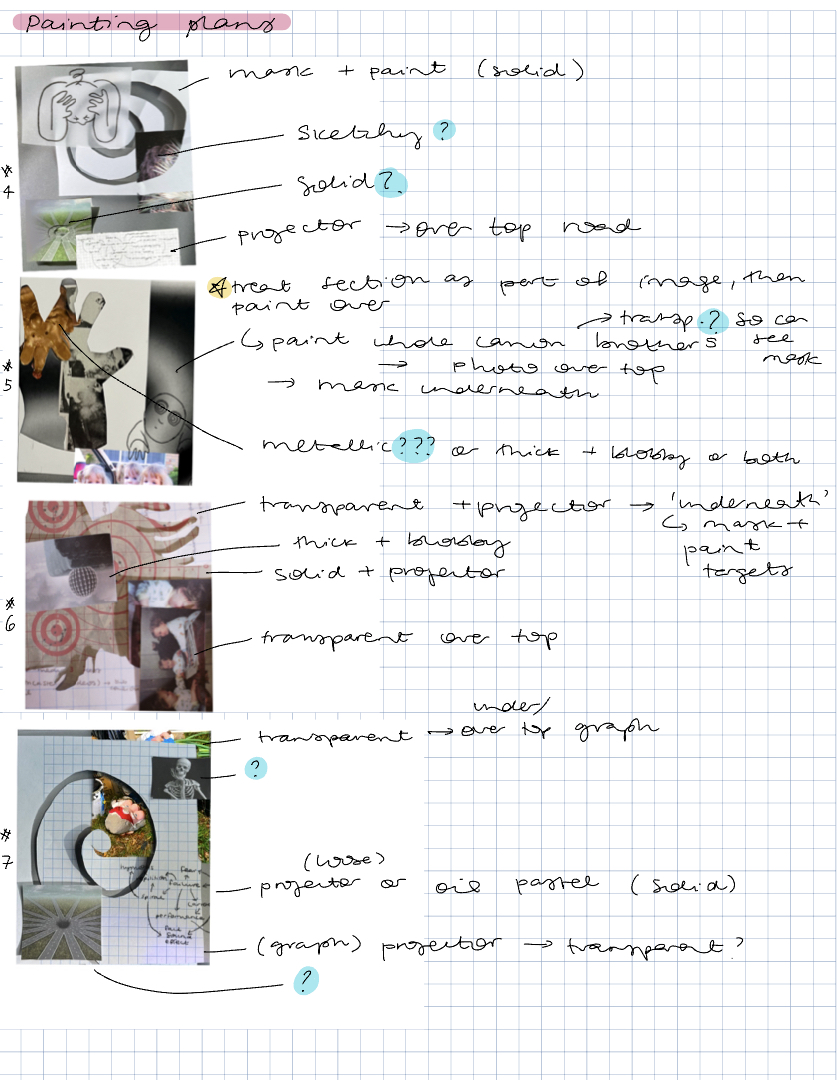 Painting plans
mask + paint (solid)
Sketchy ?
#4
solid ?
projector → over top road
treat section as part of image, then
paint over
→ transp.? so can
see
mask
↳ paint whole canvas brothers
→ photo over top
#5
→ mask underneath
metallic ??? or thick + blobby or both
transparent + projector → 'underneath'
↳ mask +
paint
targets
thick + blobby
solid + projector
#6
transparent over top
under/
transparent → over top graph
?
#7
(loose)
projector or oil pastel (solid)
performance
(graph) projector → transparent?
?